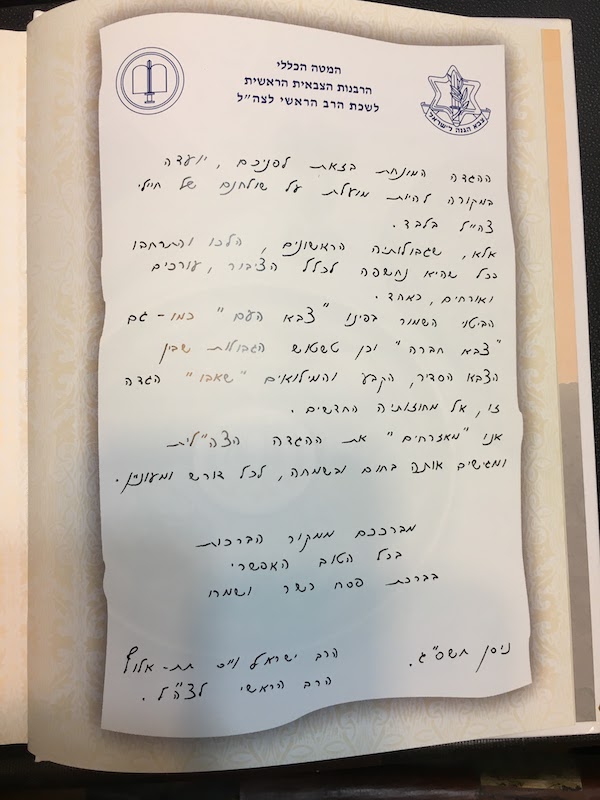 המטה הכללי
הרבנות הצבאית הראשית
לשכת הרב הראשי לצה"ל
צבא הגנה לישראל
ההגדה המונחת בזאת לפניכם, יועדה
במקורה להיות מועלת על שולחנם של חיילי
צה"ל בלבד.
אלא, שגבולותיה הראשונים, הלכו והתרחבו
ככל שהיא נחשפה לכלל הציבור, עורכים
ואורחים, כאחד.
הביטוי השמור בפינו "צבא העם" כמו-גם
"צבא חברה" וכן טשטוש הגבולות שבין
הצבא הסדיר, הקבע והמילואים "שאבו" הגדה
זו, אל מחוזותיה החדשים.
אנו "מאזרחים" את ההגדה הצה"לית
ומגישים אותה בחום ובשמחה, לכל דורש ומעוניין.
מברככם ממקור הברכות
בכל הטוב האפשרי
בברכת פסח כשר ושמח
ניסן תשס"ג.
הרב ישראל וייס תת-אלוף
הרב הראשי לצה"ל.